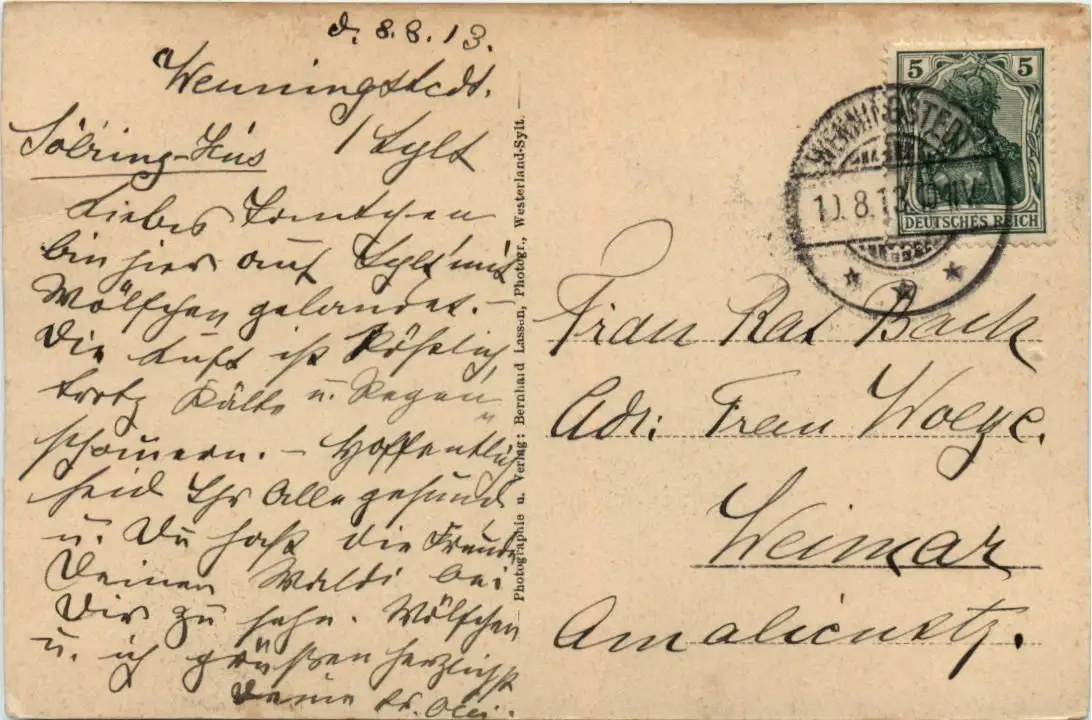 d. 8.8.13.
Wenningstedt.
Söl'ring-Hüs / Sylt
Liebes Tantchen
bin hier auf Sylt mit
Wölfchen gelandet. –
Die Luft ist köstlich,
trotz Kälte u. Regen-
schauern. – Hoffentlich
seid Ihr Alle gesund
u. Du hast die Freude
Deinen Waldi bei
Dir zu sehn. Wölfchen
u. ich grüßen herzlichst
Deine tr.
Photographie u. Verlag: Bernhard Lassen, Photogr., Westerland-Sylt.
5 5
DEUTSCHES REICH
WENNINGSTEDT
10.8.13.
Frau Rat Back
Adr: Frau
Weimar
Amalienstr.